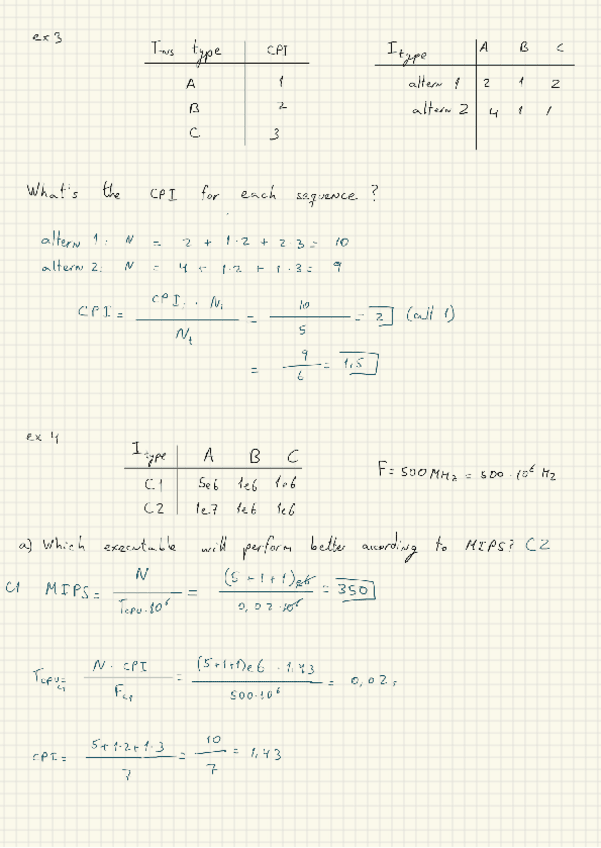 ex 3
Ins type CPI
A 1
B 2
C 3
I type A B C
altern 1 2 1 2
altern 2 4 1 1
What's the CPI for each sequence?
altern 1: N = 2 + 1·2 + 2·3 = 10
altern 2: N = 4 + 1·2 + 1·3 = 9
CPI = CPI_i · N_i / N_t = 10 / 5 = 2 (alt 1)
= 9 / 6 = 1,5
ex 4
I type A B C
C1 5e6 1e6 1e6
C2 1e7 1e6 1e6
F = 500 MHz = 500 · 10^6 Hz
a) Which executable will perform better according to MIPS? C2
C1 MIPS = N / T_CPU · 10^6 = (5 + 1 + 1)e6 / 0,02 · 10^6 = 350
T_CPU_C1 = N · CPI / F = (5+1+1)e6 · 1,43 / 500·10^6 = 0,02s
CPI = 5+1·2+1·3 / 7 = 10 / 7 = 1,43